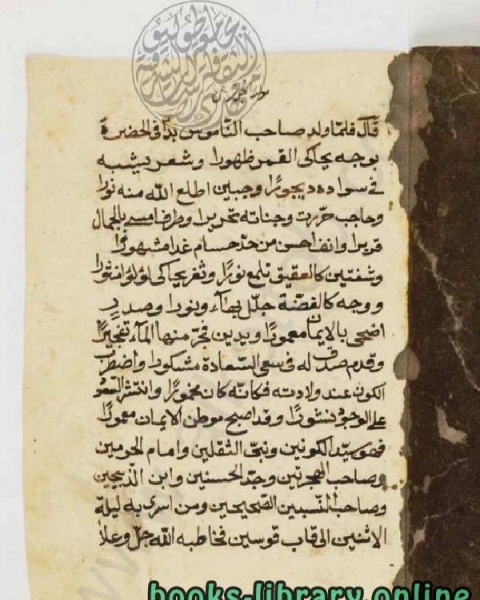 قال فلما ولد صاحب الناموس بدا في الحضرة
بوجه يحاكى القمر ظهورا وشعر يشبه
في سواده ديجورا وجبين اطلع الله منه نورا
وحاجب حررت وجناته تحريرا وطرفا مسى بالجمال
قريرا وانف احسن من حد حسام غدا مشهورا
وشفتين كالعقيق تلمع نورا وثغر يحاكى لؤلؤا منثورا
ووجه كالفضة جلل بهاء ونورا وصدر
اضحى بالايمان معمورا ويدين فجر منها الماء تفجيرا
وقدم صدق له في سعى السعادة مشكورا واضطرب
الكون عند ولادته فكانه كان مخمورا وانتشر السعود
على الوجود نشورا وقد اصبح موطن الايمان معمورا
فهو سيد الكونين ونبى الثقلين وامام الحرمين
وصاحب الهجرتين وجد الحسنين وابن الذبيحين
وصاحب النسبين الصحيحين ومن اسرى به ليلة
الاثنين الى قاب قوسين فخاطبه الله جل وعلا
books-library.online